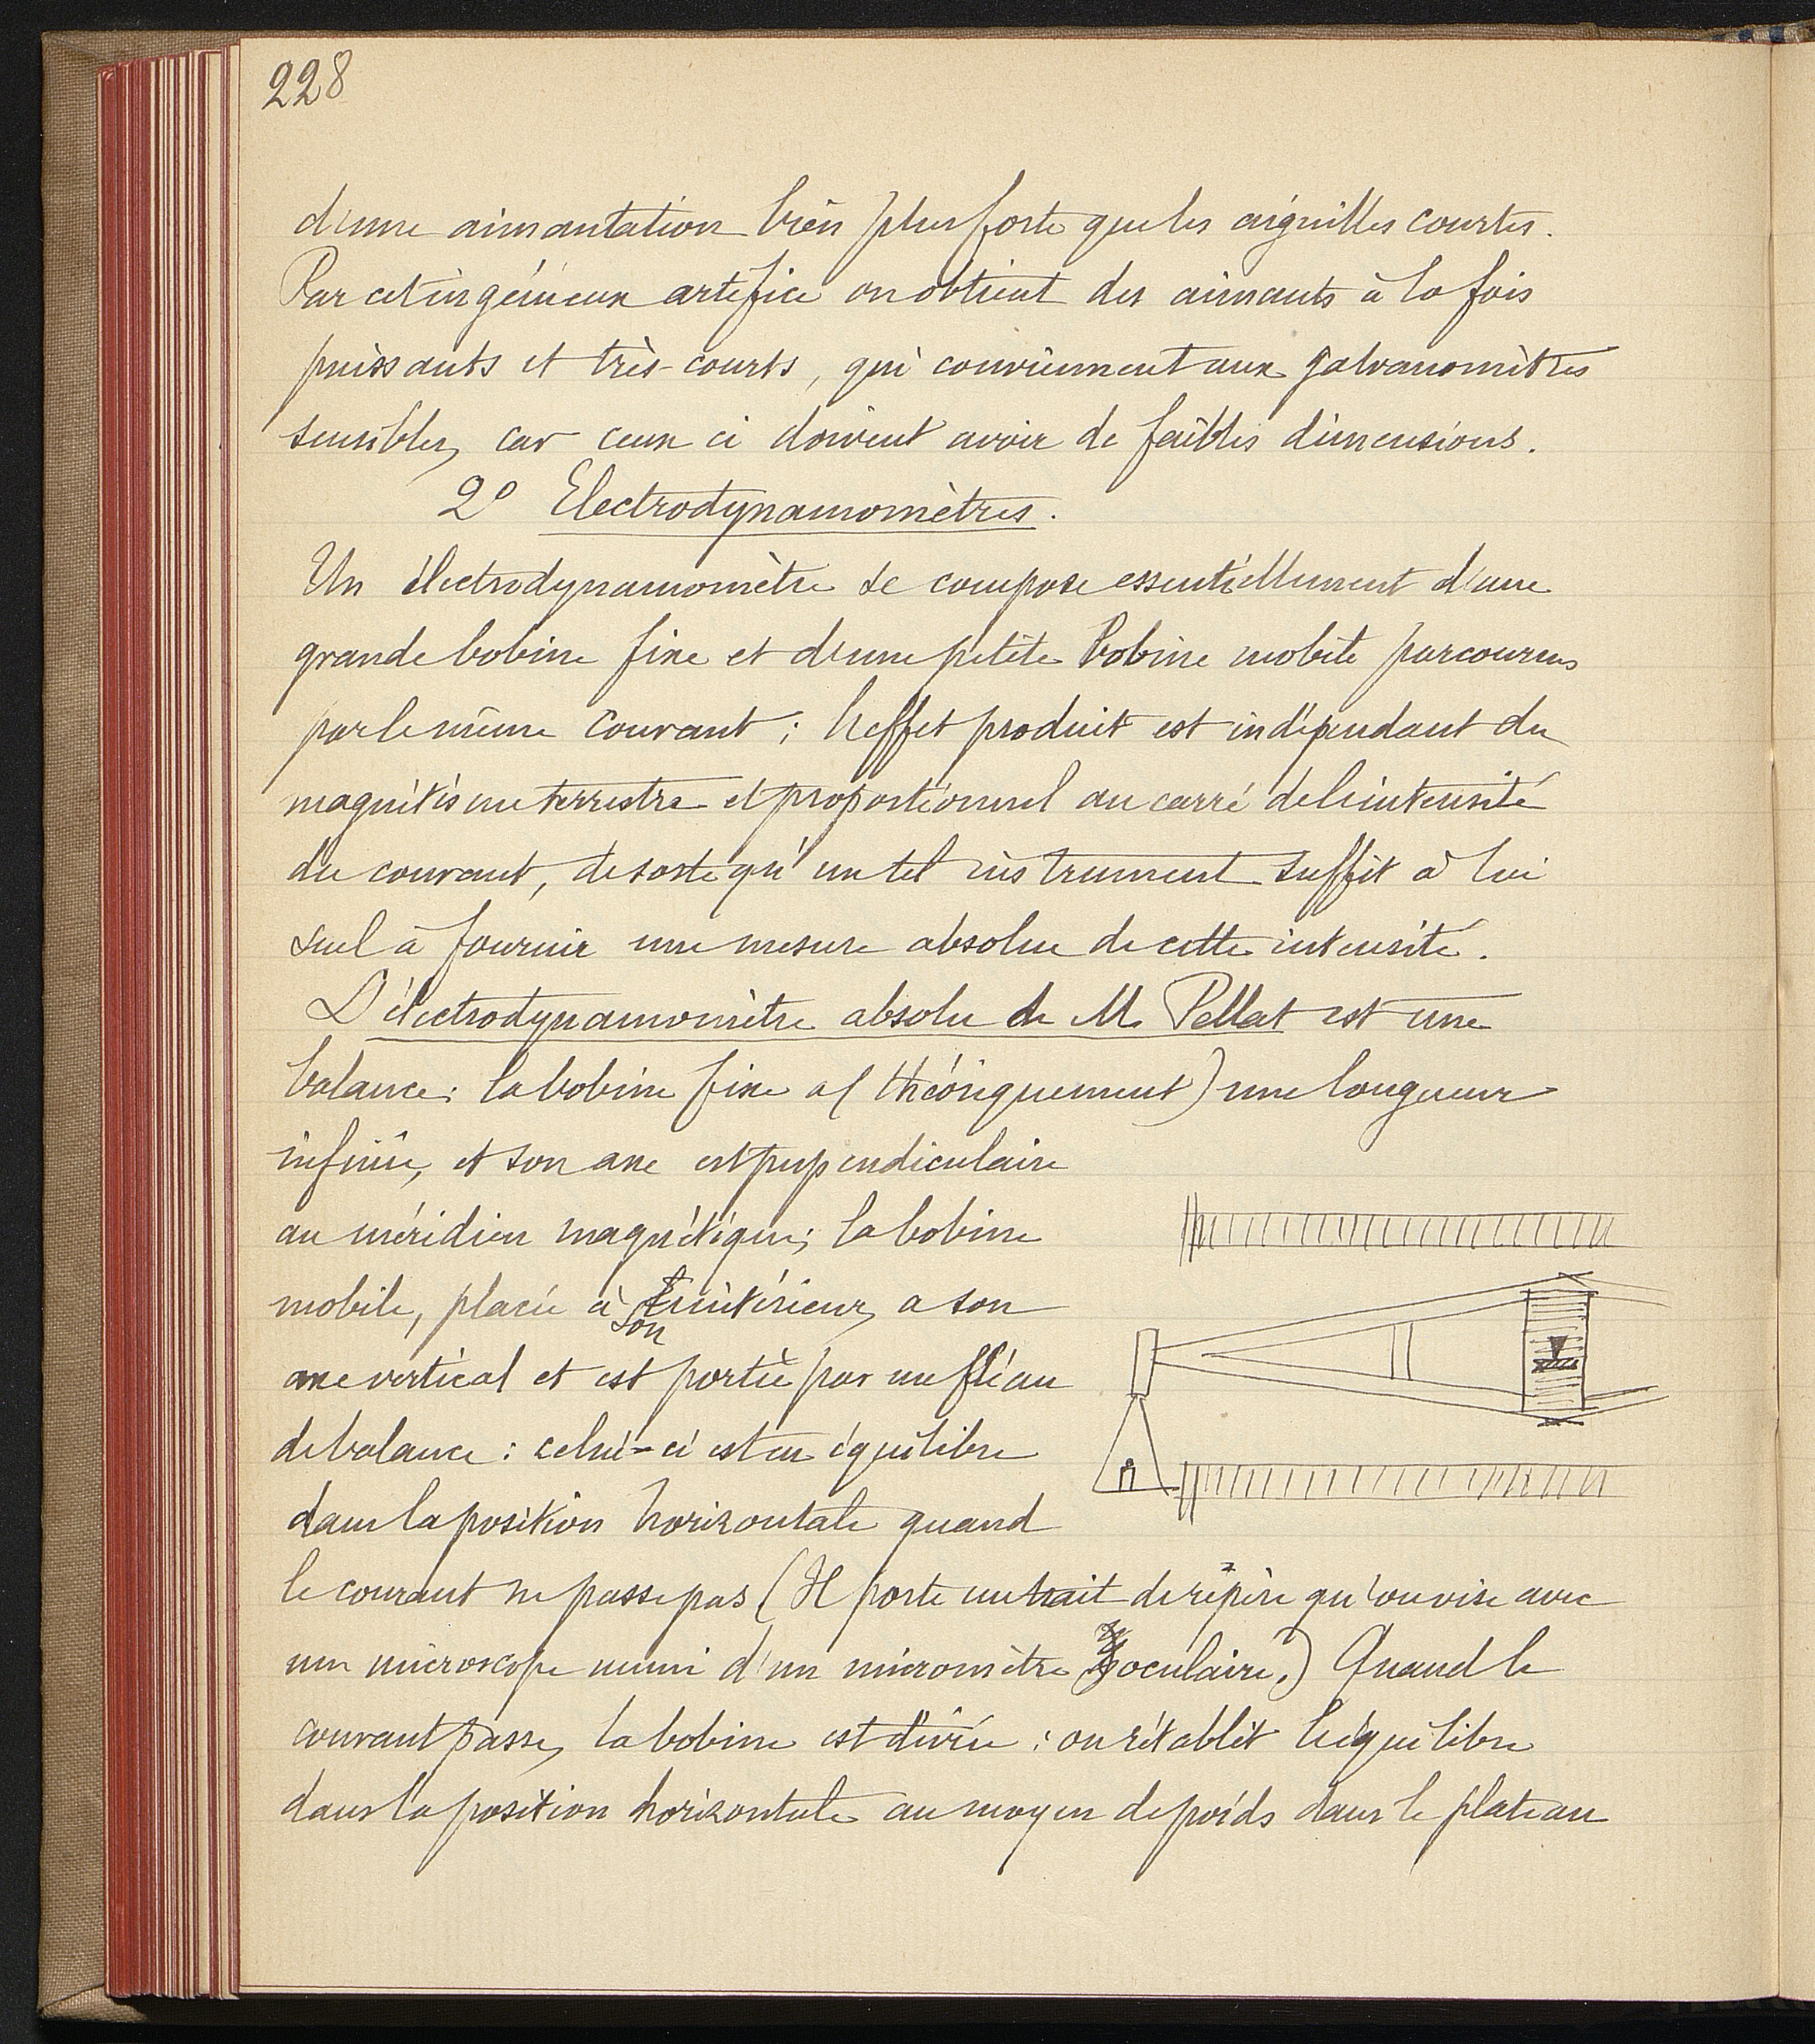 228
d'une aimantation bien plus forte que les aiguilles courtes.
Par cet ingénieux artifice on obtient des aimants à la fois
puissants et très-courts, qui conviennent aux galvanomètres
sensibles, car ceux ci doivent avoir de faibles dimensions.
2º Electrodynamomètres.
Un électrodynamomètre se compose essentiellement d'une
grande bobine fixe et d'une petite bobine mobile parcourues
par le même courant ; l'effet produit est indépendant du
magnétisme terrestre et proportionnel au carré de l'intensité
du courant, de sorte qu'un tel instrument suffit à lui
seul à fournir une mesure absolue de cette intensité.
L'électrodynamomètre absolu de M. Pellat est une
balance : la bobine fixe a (théoriquement) une longueur
infinie, et son axe est perpendiculaire
au méridien magnétique ; la bobine
mobile, placée à son intérieur, a son
axe vertical et est portée par un fléau
de balance : celui-ci est en équilibre
dans la position horizontale quand
le courant ne passe pas (Il porte un trait de repère qu'on vise avec
un microscope muni d'un micromètre oculaire.) Quand le
courant passe, la bobine est déviée : on rétablit l'équilibre
dans la position horizontale au moyen de poids dans le plateau